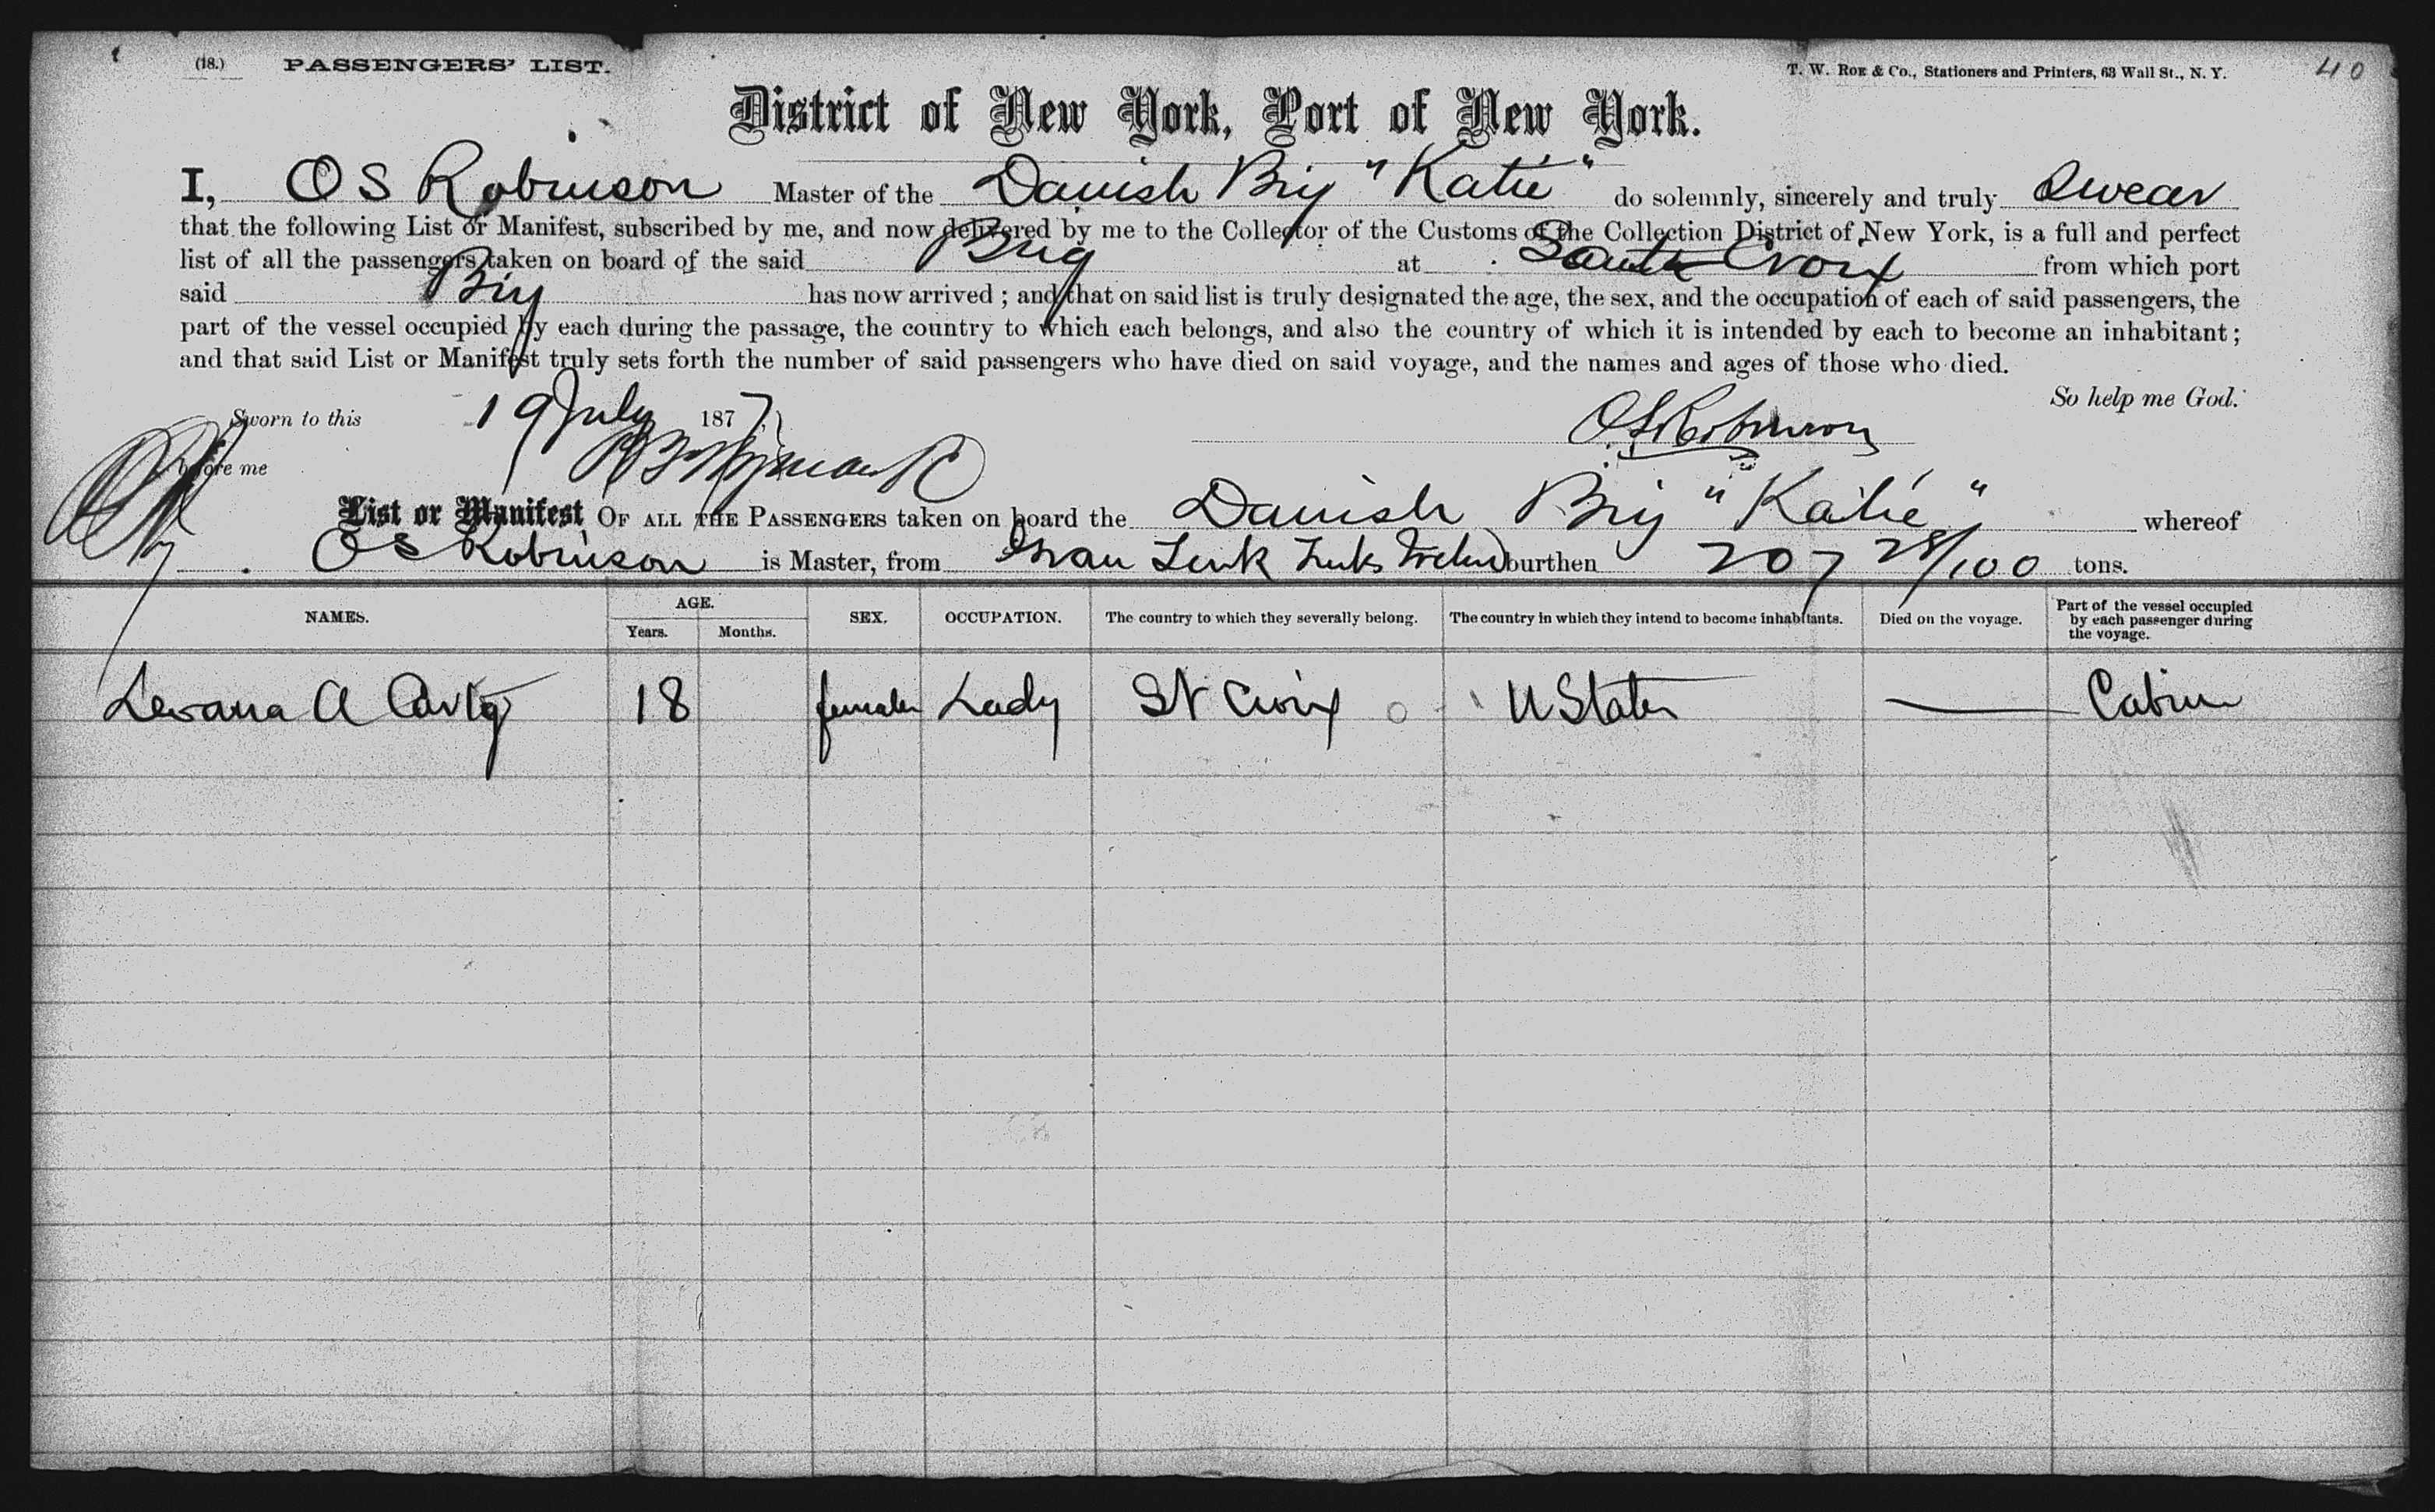 (18.) PASSENGERS' LIST. T. W. ROE & Co., Stationers and Printers, 63 Wall St., N. Y. 40
District of New York, Port of New York.
I, O S Robinson Master of the Danish Brig "Katie" do solemnly, sincerely and truly Swear
that the following List or Manifest, subscribed by me, and now delivered by me to the Collector of the Customs of the Collection District of New York, is a full and perfect
list of all the passengers taken on board of the said Brig at Santa Croix from which port
said Brig has now arrived ; and that on said list is truly designated the age, the sex, and the occupation of each of said passengers, the
part of the vessel occupied by each during the passage, the country to which each belongs, and also the country of which it is intended by each to become an inhabitant ;
and that said List or Manifest truly sets forth the number of said passengers who have died on said voyage, and the names and ages of those who died.
So help me God.
Sworn to this 19 July 1877 O S Robinson
before me
List or Manifest OF ALL THE PASSENGERS taken on board the Danish Brig "Katie" whereof
O S Robinson is Master, from burthen 207 28/100 tons.
NAMES. AGE. Years. Months. SEX. OCCUPATION. The country to which they severally belong. The country in which they intend to become inhabitants. Died on the voyage. Part of the vessel occupied by each passenger during the voyage.
A 18 female Lady St Croix U States — Cabin